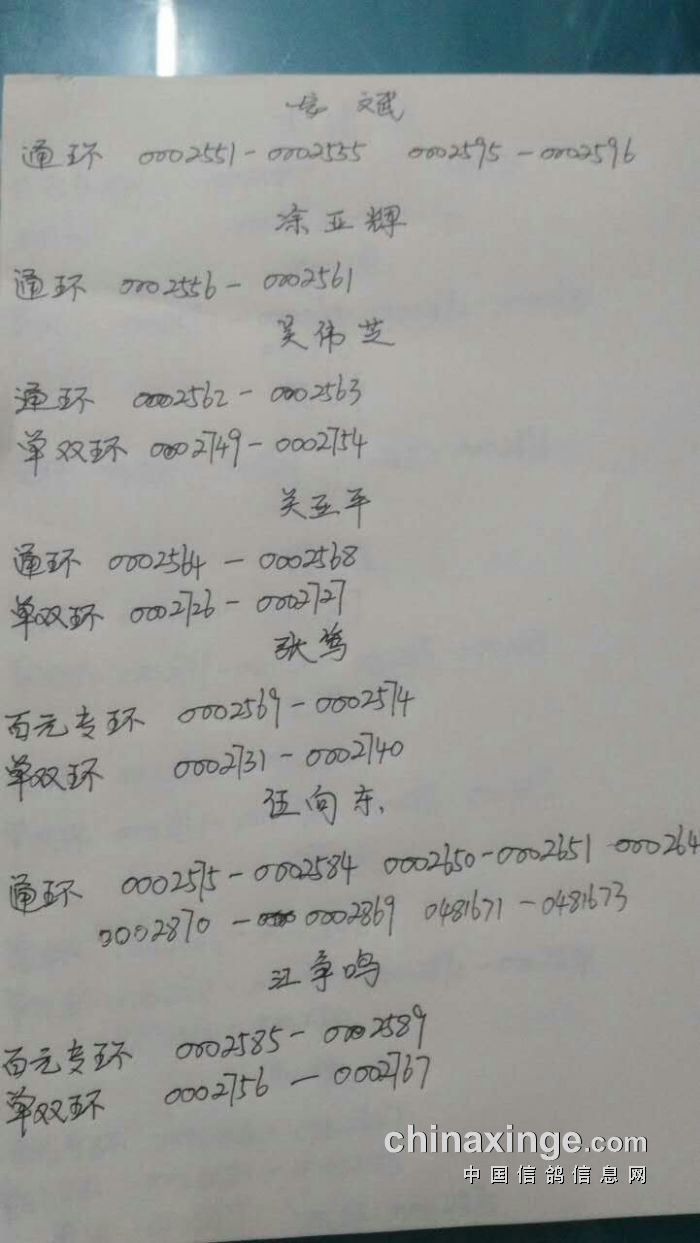 文斌
通环 0002551-0002555 0002595-0002596
涂亚辉
通环 0002556- 0002561
吴伟芝
通环 0002562- 0002563
单双环 0002749-0002754
关亚平
通环 0002564- 0002568
单双环 0002726- 0002727
张
百元专环 0002569-0002574
单双环 0002731- 0002740
伍向东
通环 0002575-0002584 0002650-0002651 000264
0002870 - 0002869 0481671-0481673
江争鸣
百元专环 0002585-0002589
单双环 0002756- 0002767
chinaxinge.com
中国信鸽信息网